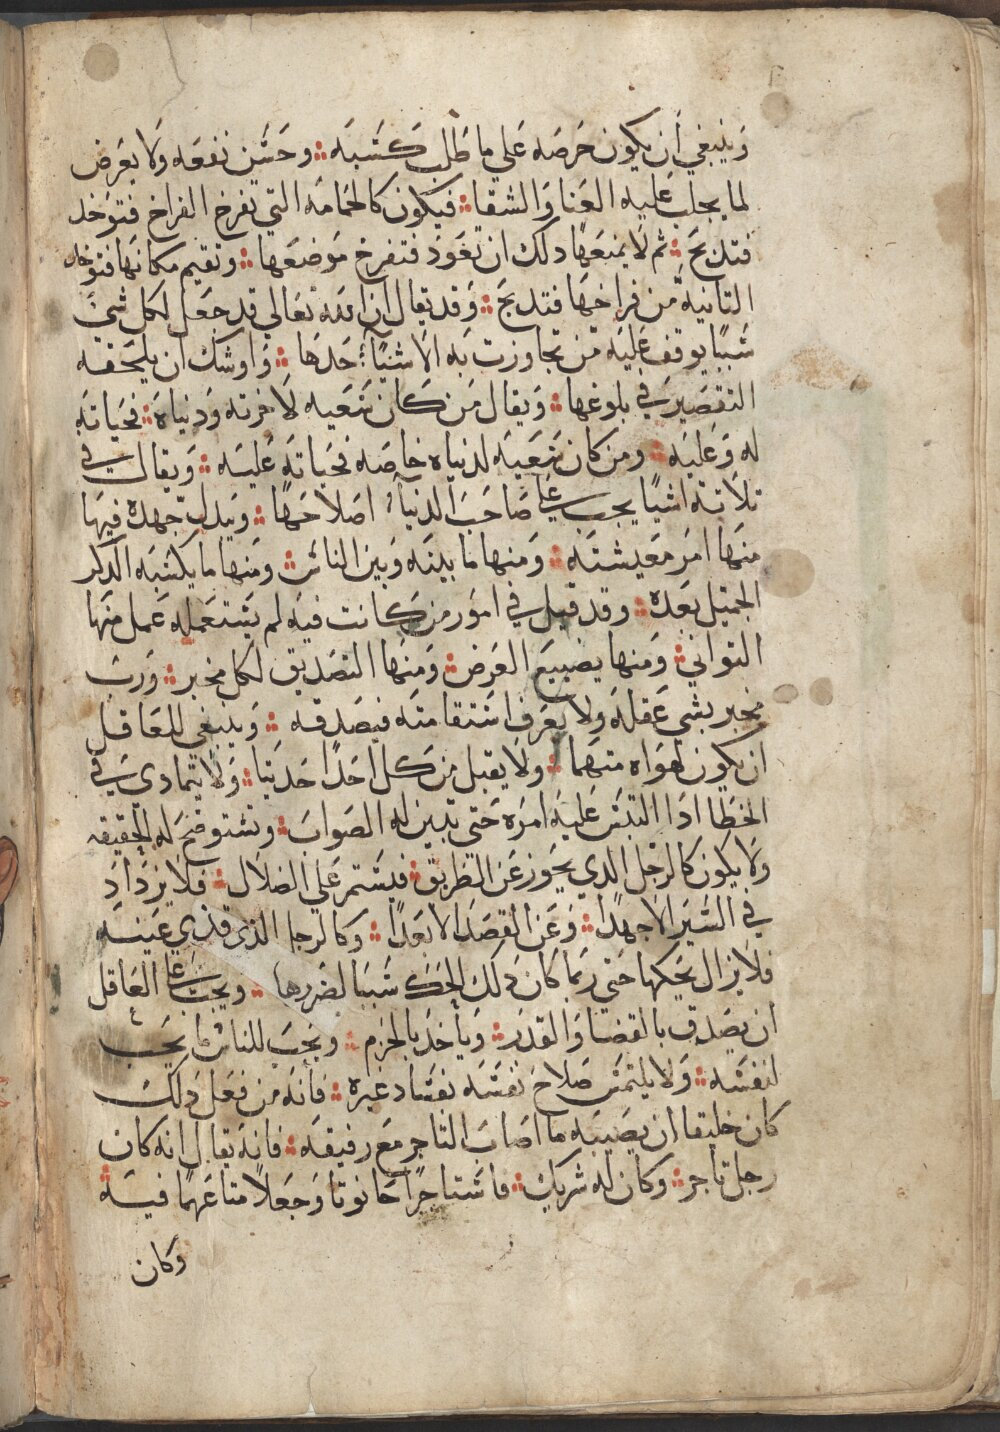 وينبغي أن يكون حرصه علي ما طلب كسبه ∴ وحسن نفعه ولا يعرض
لما يجلب عليه العنا والشقا ∴ فيكون كالحمامه التي تفرخ الفراخ فتوخد
فتدبح ∴ ثم لا يمنعها دلك ان تعود فتفرخ موضعها ∴ وتقيم مكانها فتوخد
التانيه من فراخها فتدبح ∴ وقد يقال ان الله تعالي قد جعل لكل شيً
سببًا يوقف عليه من تجاوزت به الاشيًا حدها ∴ واوشك ان يلحقه
التقصير في بلوغها ∴ ويقال من كان سعيه لاخرته ودنياه ∴ فحياته
له وعليه ∴ ومن كان سعيه لدنياه خاصه فحياته عليه ∴ ويقال في
تلاتة اشيًا يجب علي صاحب الدنيا اصلاحها ∴ ويبدل جهده فيها
منها امر معيشته ∴ ومنها ما بينه وبين الناس ∴ ومنها ما يكسبه الدكر
الجميل بعده ∴ وقد قيل في امور من كانت فيه لم يستعمله عمل منها
التواني ∴ ومنها يضييع الفرض ∴ ومنها التصديق لكل مخبر ∴ ورب
مخبر بشي عقله ولا يعرف استقامته فيصدقه ∴ وينبغي للعاقل
ان يكون لهواه متهما ∴ ولا يقبل من كل احدًا حديتا ∴ ولا يتمادي في
الخطا ادا التبس عليه امره حتي تبين له الصواب ∴ وتستوضح له الحقيقه
ولا يكون كالرجل الدي يجوز عن الطريق ∴ فيستمر علي الضلال ∴ فلا يزداد
في السير الا جهدًا ∴ وعن القصد الا بعدًا ∴ وكالرجل الذي قذي عينه
فلا يزال يحكها حتي ربما كان دلك الحك سببا لضررها ∴ ويجب علي العاقل
ان يصدق بالقضا والقدر ∴ وياخد بالحزم ∴ ويحب للناس ما يحب
لنفسه ∴ ولا يلتمس صلاح نفسه بفساد غيره ∴ فأنه من فعل دلك
كان خليقا ان يصيبه ما اصاب التاجر مع رفيقه ∴ فانه يقال انه كان
رجل تاجر ∴ وكان له شريك ∴ فاستاجرًا حانوتا وجعلًا متاعهما فيه
وكان